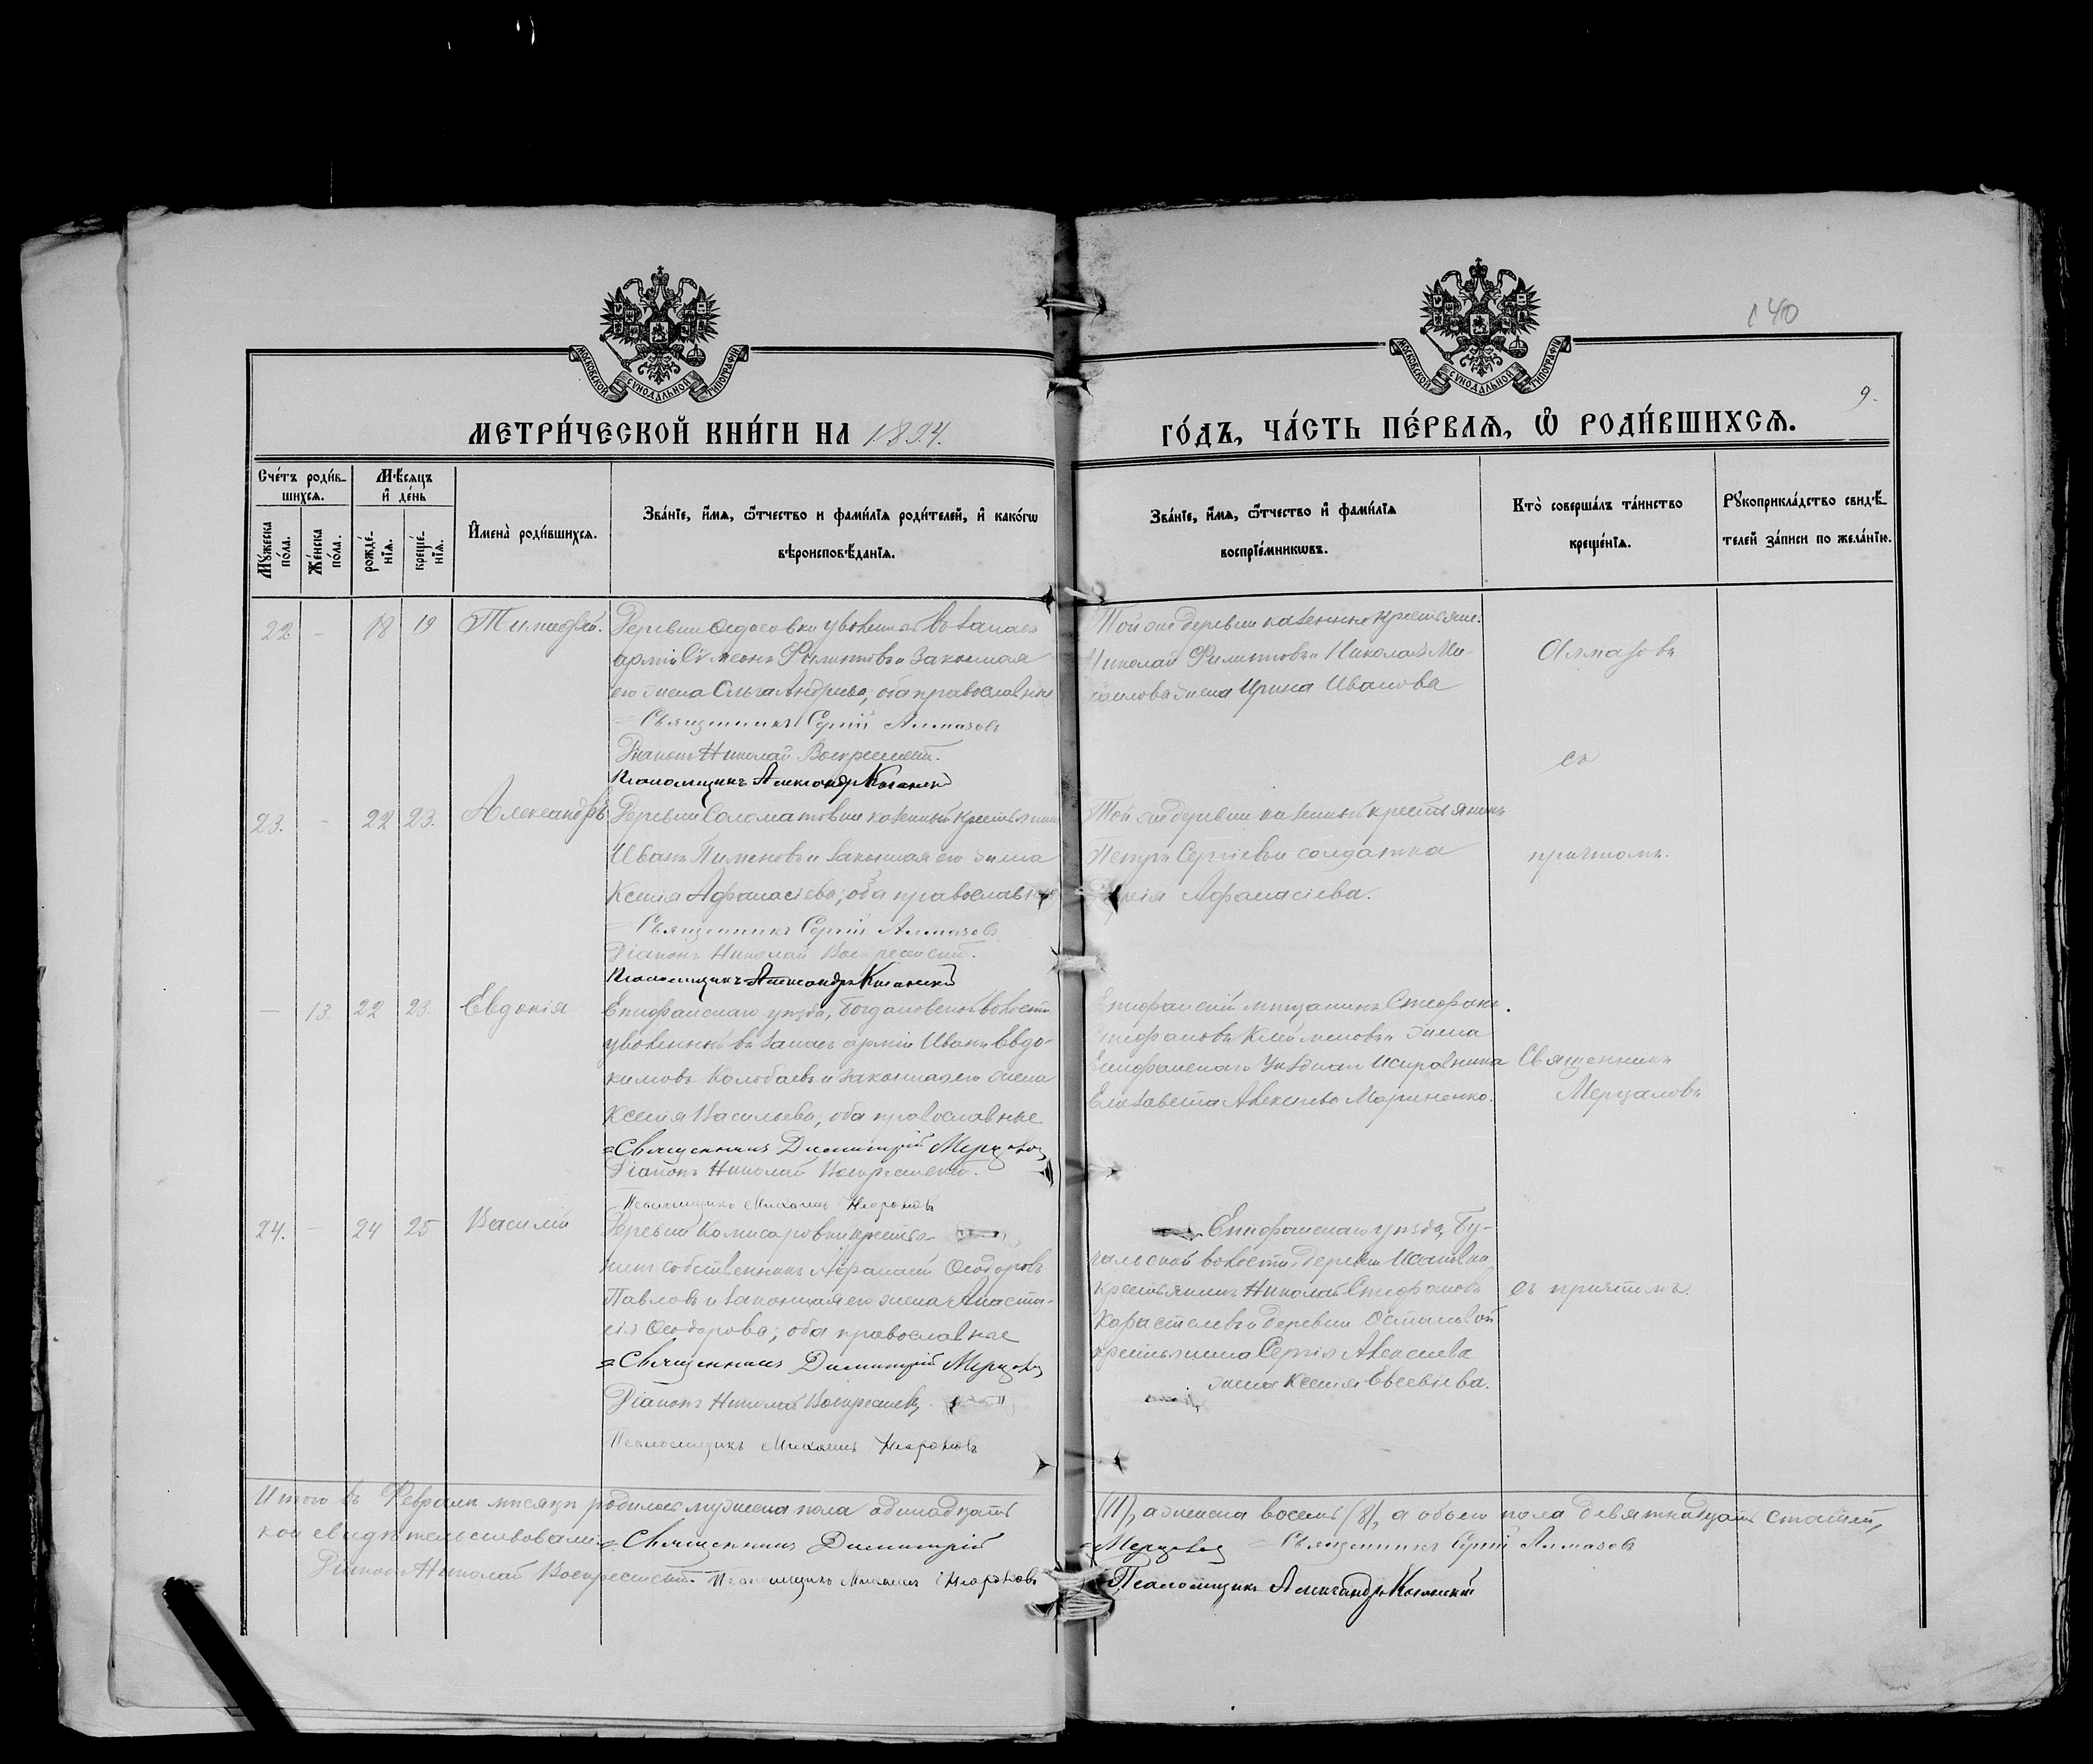 140
9.
МОСКОВСКОЙ СѴНОДАЛЬНОЙ ТИПОГРАФІИ
МОСКОВСКОЙ СѴНОДАЛЬНОЙ ТИПОГРАФІИ
МЕТРИ́ЧЕСКОЙ КНИ́ГИ НА 1894.
ГО́ДЪ, ЧА́СТЬ ПЕ́РВАѦ, Ѽ РОДИ́ВШИХСѦ.
Сче́тъ роди́в-
шихсѧ.
Мѣ́сѧцъ
и҆ де́нь
Мꙋ́жеска по́ла.
Же́нска по́ла.
рожде́-
нїѧ.
креще́-
нїѧ.
И҆мена̀ роди́вшихсѧ.
Зва́нїе, и҆́мѧ, ѻ҆́тчество и фами́лїѧ роди́телей, и҆ како́гѡ
вѣроисповѣ́данїѧ.
Зва́нїе, и҆́мѧ, ѻ҆́тчество и҆ фами́лїѧ
воспрїе́мникѡвъ.
Кто̀ соверша́лъ та́инство
креще́нїѧ.
Рꙋкоприкла́дство свидѣ́-
телей за́писи по жела́нїю.
22. - 18 19 Тимофей. Деревни Федосовки уволенный въ запасъ
арміи Сѵмеонъ Филиповъ и законная
его жена Ольга Андреева, оба православные
= Священникъ Сергій Алмазовъ
Діаконъ Николай Воскресенскій.
Псаломщикъ Александръ
Той же деревни казенные крестьяне.
Николай Филиповъ и Николая Ми-
хаилова жена Ирина Иванова
Алмазовъ
съ
23. - 22 23. Александръ Деревни Соломатовки казенный крестьянинъ
Иванъ Пименовъ и законная его жена
Ксенія Афанасіева; оба православные
= Священникъ Сергій Алмазовъ
Діаконъ Николай Воскресенскій.
Псаломщикъ Александръ
Той же деревни казенный крестьянинъ
Петръ Сергіевъ и солдатка
Афанасіева.
причтомъ.
— 13 22 23. Евдокія Епифанскаго уѣзда, Богдановской волости
уволенный въ запасъ арміи Иванъ Евдо-
кимовъ Колобаевъ и законная его жена
Ксенія Васильева, оба православные
= Священникъ Димитрій Мерцаловъ
Діаконъ Николай Воскресенскій.
Псаломщикъ Михаилъ
Епифанскій мѣщанинъ Стефанъ
Стефановъ Клейменовъ и жена
Епифанскаго Уѣзднаго Исправника
Елизавета Алексѣева Мариненко.
Священникъ
Мерцаловъ
24. - 24 25 Василій Деревни Комисаровки крестья-
нинъ собственникъ Афанасій Ѳеодоровъ
Павловъ и законная его жена Анаста-
сія Ѳеодорова; оба православные
= Священникъ Димитрій Мерцаловъ
Діаконъ Николай Воскресенскій.
Псаломщикъ Михаилъ
Епифанскаго уѣзда, Бу-
чальской волости, деревни
крестьянинъ Николай Стефановъ
Карастелевъ и деревни
крестьянина Сергія Алексѣева
жена Ксенія Евсевіева.
съ причтомъ.
Итого въ Февралѣ мѣсяцѣ родилось мужеска пола одинадцать
(11), а женска восемь (8), а обоего пола девятнадцать статей,
кои свидѣтельствовали: = Священникъ Димитрій
Мерцаловъ = Священникъ Сергій Алмазовъ
Діаконъ Николай Воскресенскій. Псаломщикъ Михаилъ
Псаломщикъ Александръ